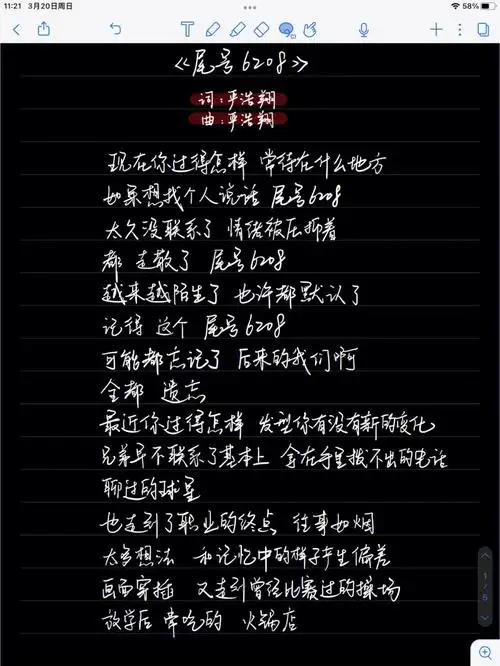 11:21 3月20日周日 58%
《尾号6208》
词:严浩翔
曲:严浩翔
现在你过得怎样 常待在什么地方
如果想找个人说话 尾号6208
太久没联系了 情绪被压抑着
都 走散了 尾号6208
越来越陌生了 也许都默认了
记得 这个 尾号6208
可能都忘记了 后来的我们啊
全都 遗忘
最近你过得怎样 发型你有没有新的变化
兄弟早不联系了基本上 拿在手里拨不出的电话
聊过的球星
也走到了职业的终点 往事如烟
太多想法 和记忆中的样子产生偏差
画面穿插 又走到曾经比赛过的操场
放学后 常吃的 火锅店
1
5